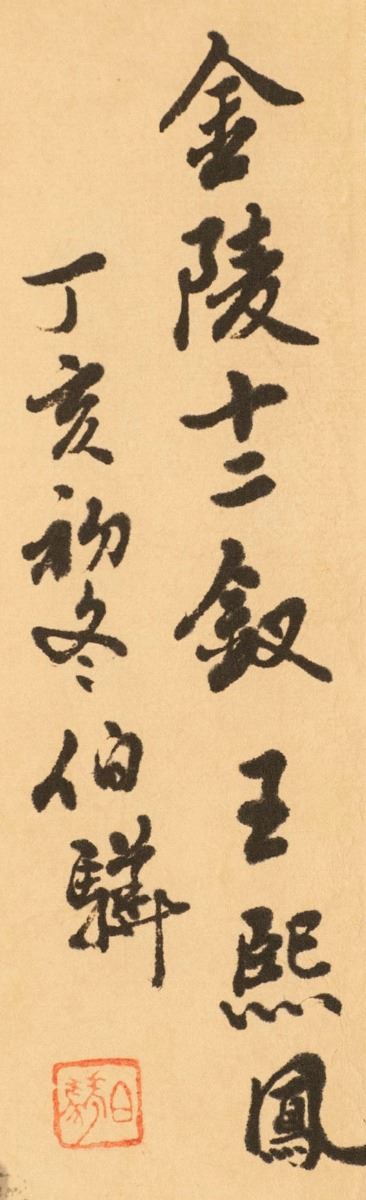 金陵十二釵王熙鳳
丁亥初冬伯驊